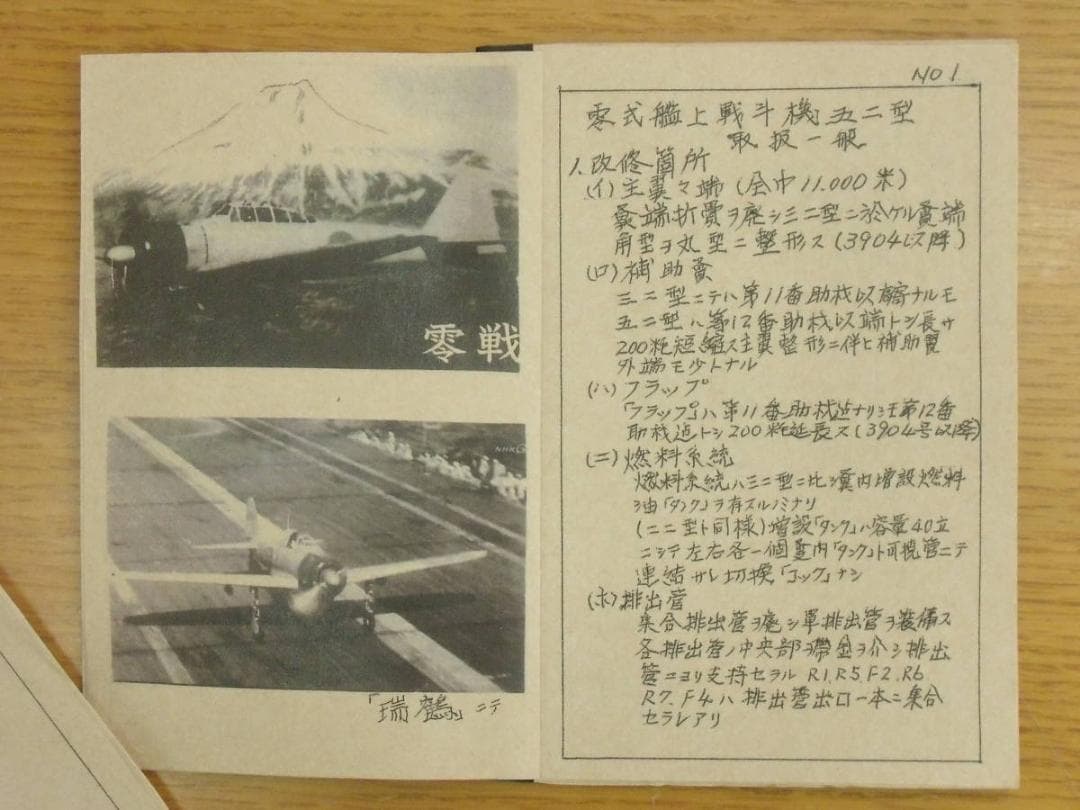 零戦
NHK
「瑞鶴」ニテ
NO 1
零式艦上戦斗機五二型
取扱一般
1. 改修箇所
(イ) 主翼々端 (全巾 11.000 米)
翼端折畳ヲ廃シ三二型ニ於ケル翼端
角型ヲ丸型ニ整形ス (3904以降)
(ロ) 補助翼
三二型ニテハ第11番助材以 ナルモ
五二型ハ第12番助材以端トシ長サ
200粍短縮ス主翼整形ニ伴ヒ補助翼
外端モ少トナル
(ハ) フラップ
「フラップ」ハ第11番助材迄ナリシモ第12番
助材迄トシ200粍延長ス (3904号以降)
(ニ) 燃料系統
燃料系統ハ三二型ニ比シ翼内増設燃料
油「タンク」ヲ有スルノミナリ
(二二型ト同様) 増設「タンク」ハ容量40立
ニシテ左右各一個翼内「タンク」ト可撓管ニテ
連結サレ切換「コック」ナシ
(ホ) 排出管
集合排出管ヲ廃シ単排出管ヲ装備ス
各排出管ノ中央部ヲ帶金ヲ介シ排出
管ニヨリ支持セラル R1.R5.F2.R6
R7.F4.ハ排出管出口一本ニ集合
セラレアリ